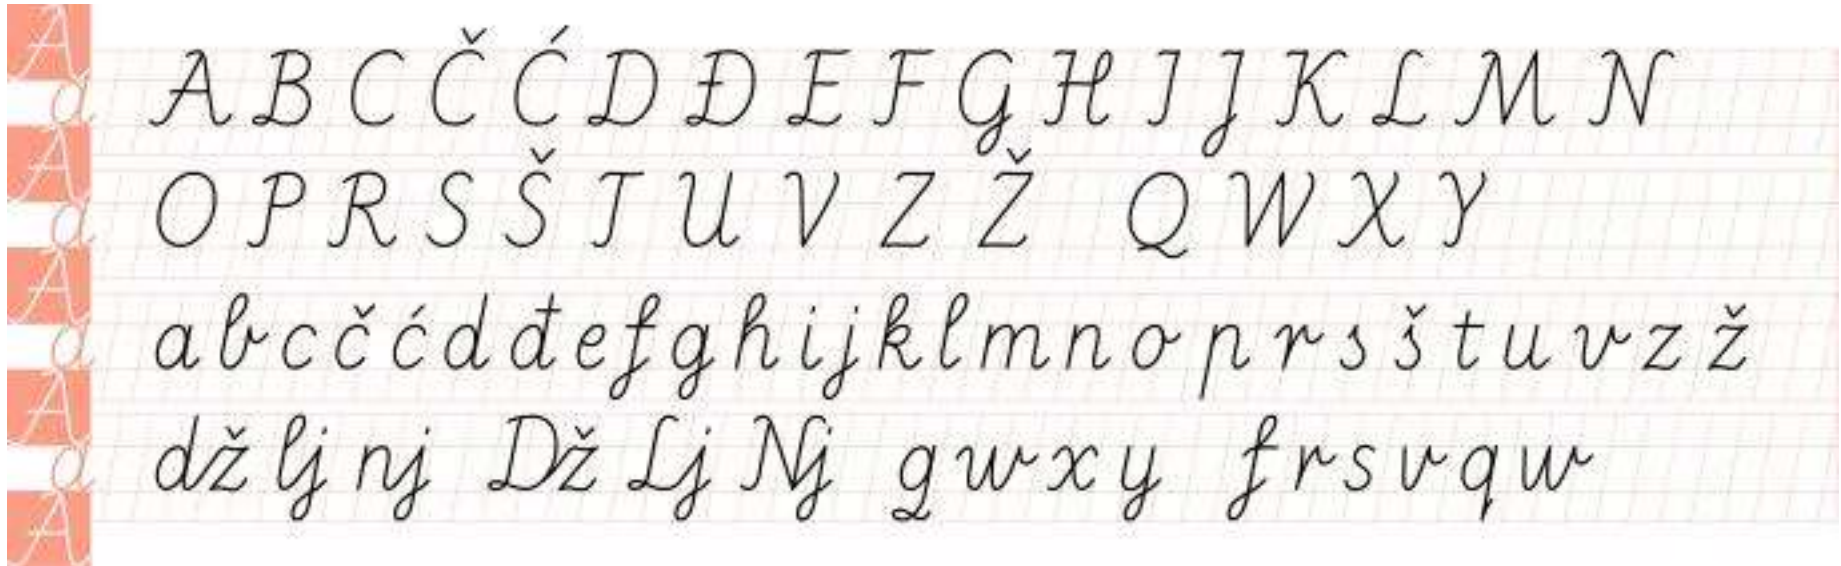 A B C Č Ć D Đ E F G H I J K L M N
O P R S Š T U V Z Ž Q W X Y
a b c č ć d đ e f g h i j k l m n o p r s š t u v z ž
dž lj nj Dž Lj Nj q w x y f r s v q w